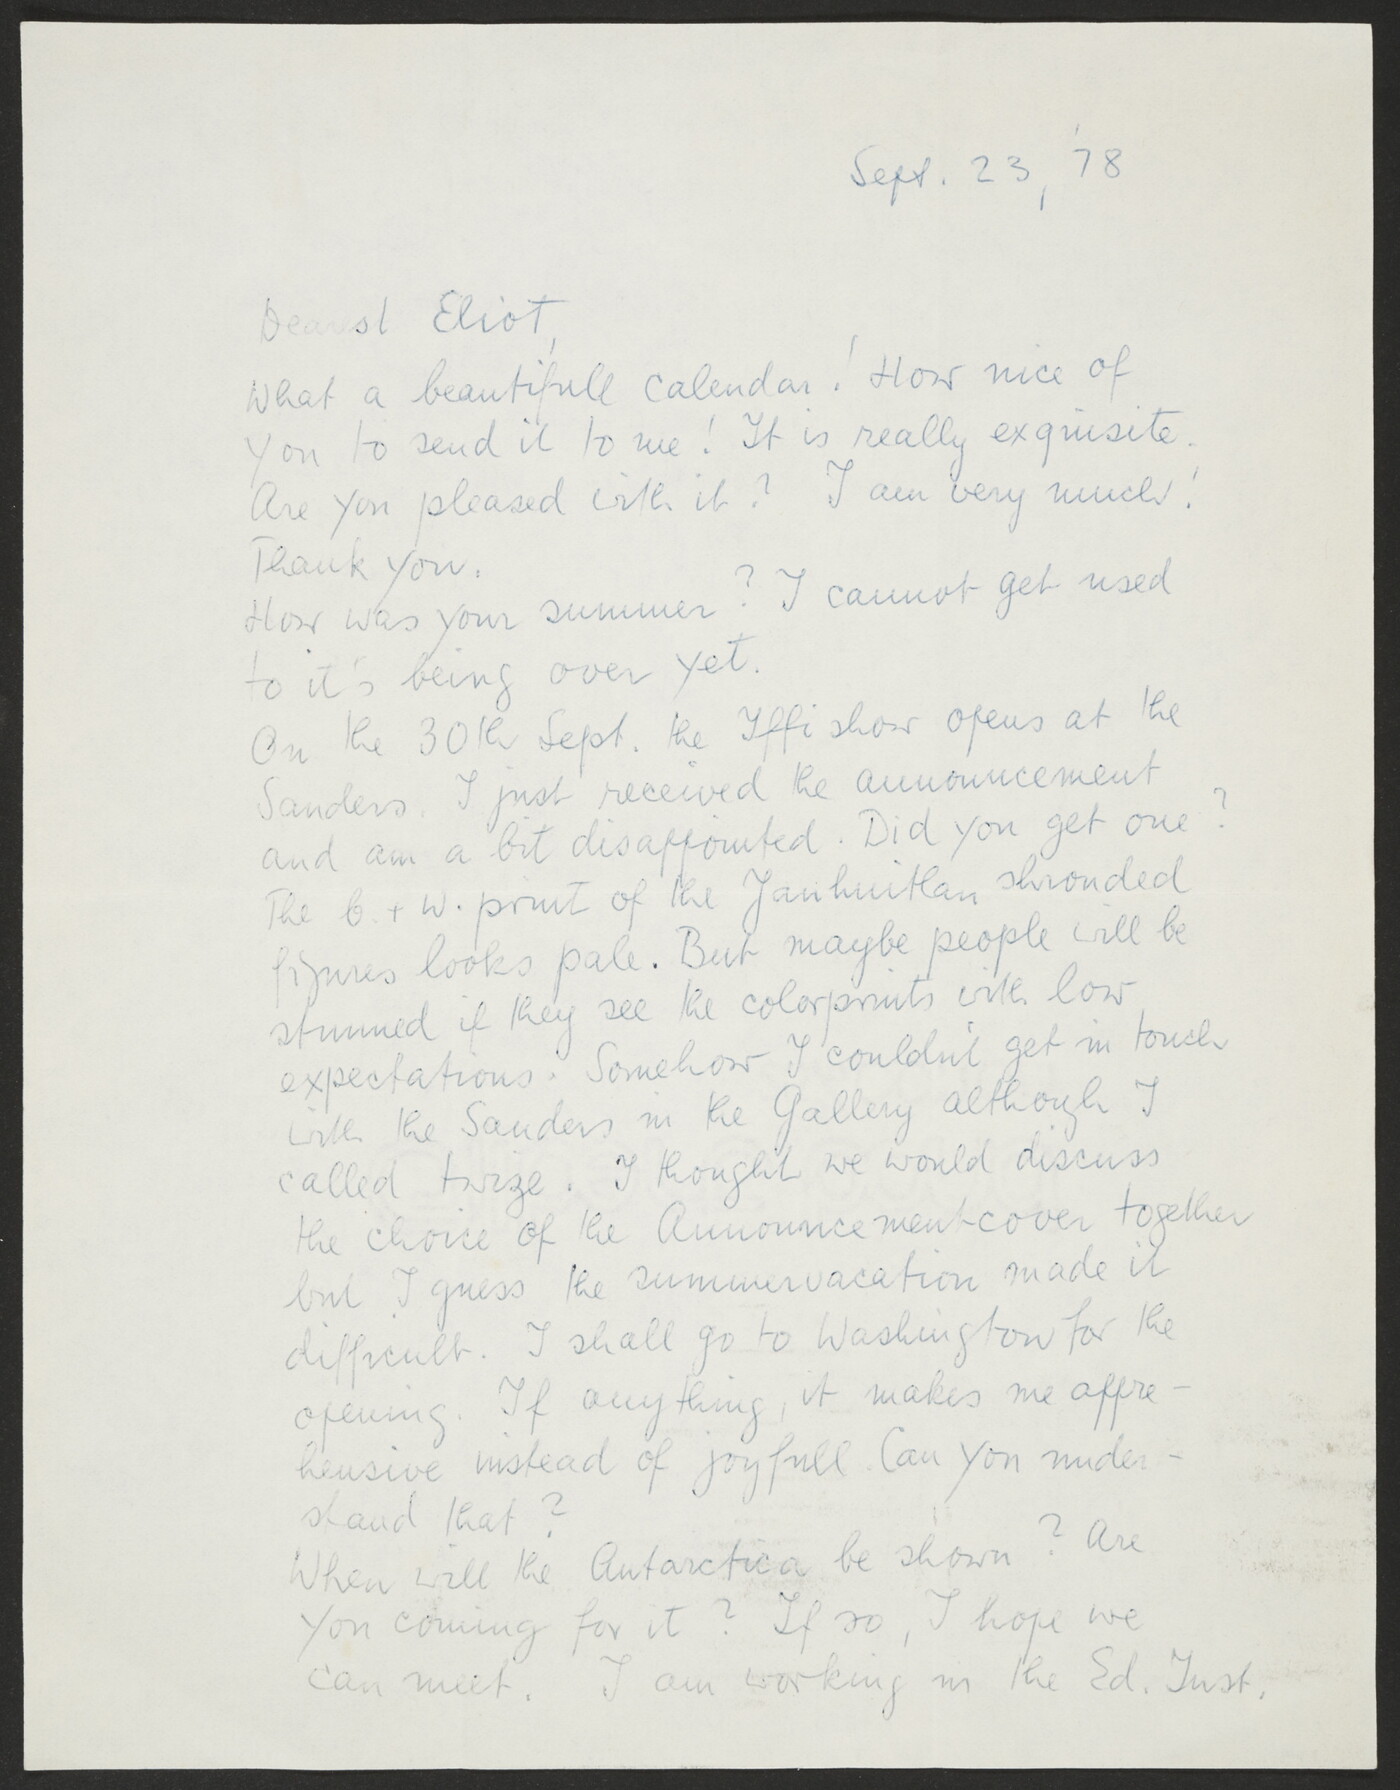 Sept. 23, '78
Dearest Eliot,
What a beautifull calendar! How nice of
you to send it to me! It is really exquisite.
Are you pleased with it? I am very much!
Thank you.
How was your summer? I cannot get used
to it's being over yet.
On the 30th Sept. the Iffi show opens at the
Sanders. I just received the announcement
and am a bit disappointed. Did you get one?
The b. + w. print of the Yanhuitlan shrouded
figures looks pale. But maybe people will be
stunned if they see the colorprints with low
expectations. Somehow I couldn't get in touch
with the Sanders in the Gallery although I
called twize. I thought we would discuss
the choice of the Announcement-cover together
but I guess the summervacation made it
difficult. I shall go to Washington for the
opening. If anything, it makes me appre-
hensive instead of joyfull. Can you under-
stand that?
When will the Antarctica be shown? Are
you coming for it? If so, I hope we
can meet. I am working in the Ed. Inst.